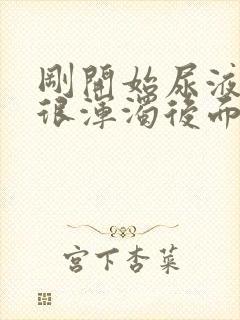 剛開始尿液
很渾濁後而
宮下杏菜